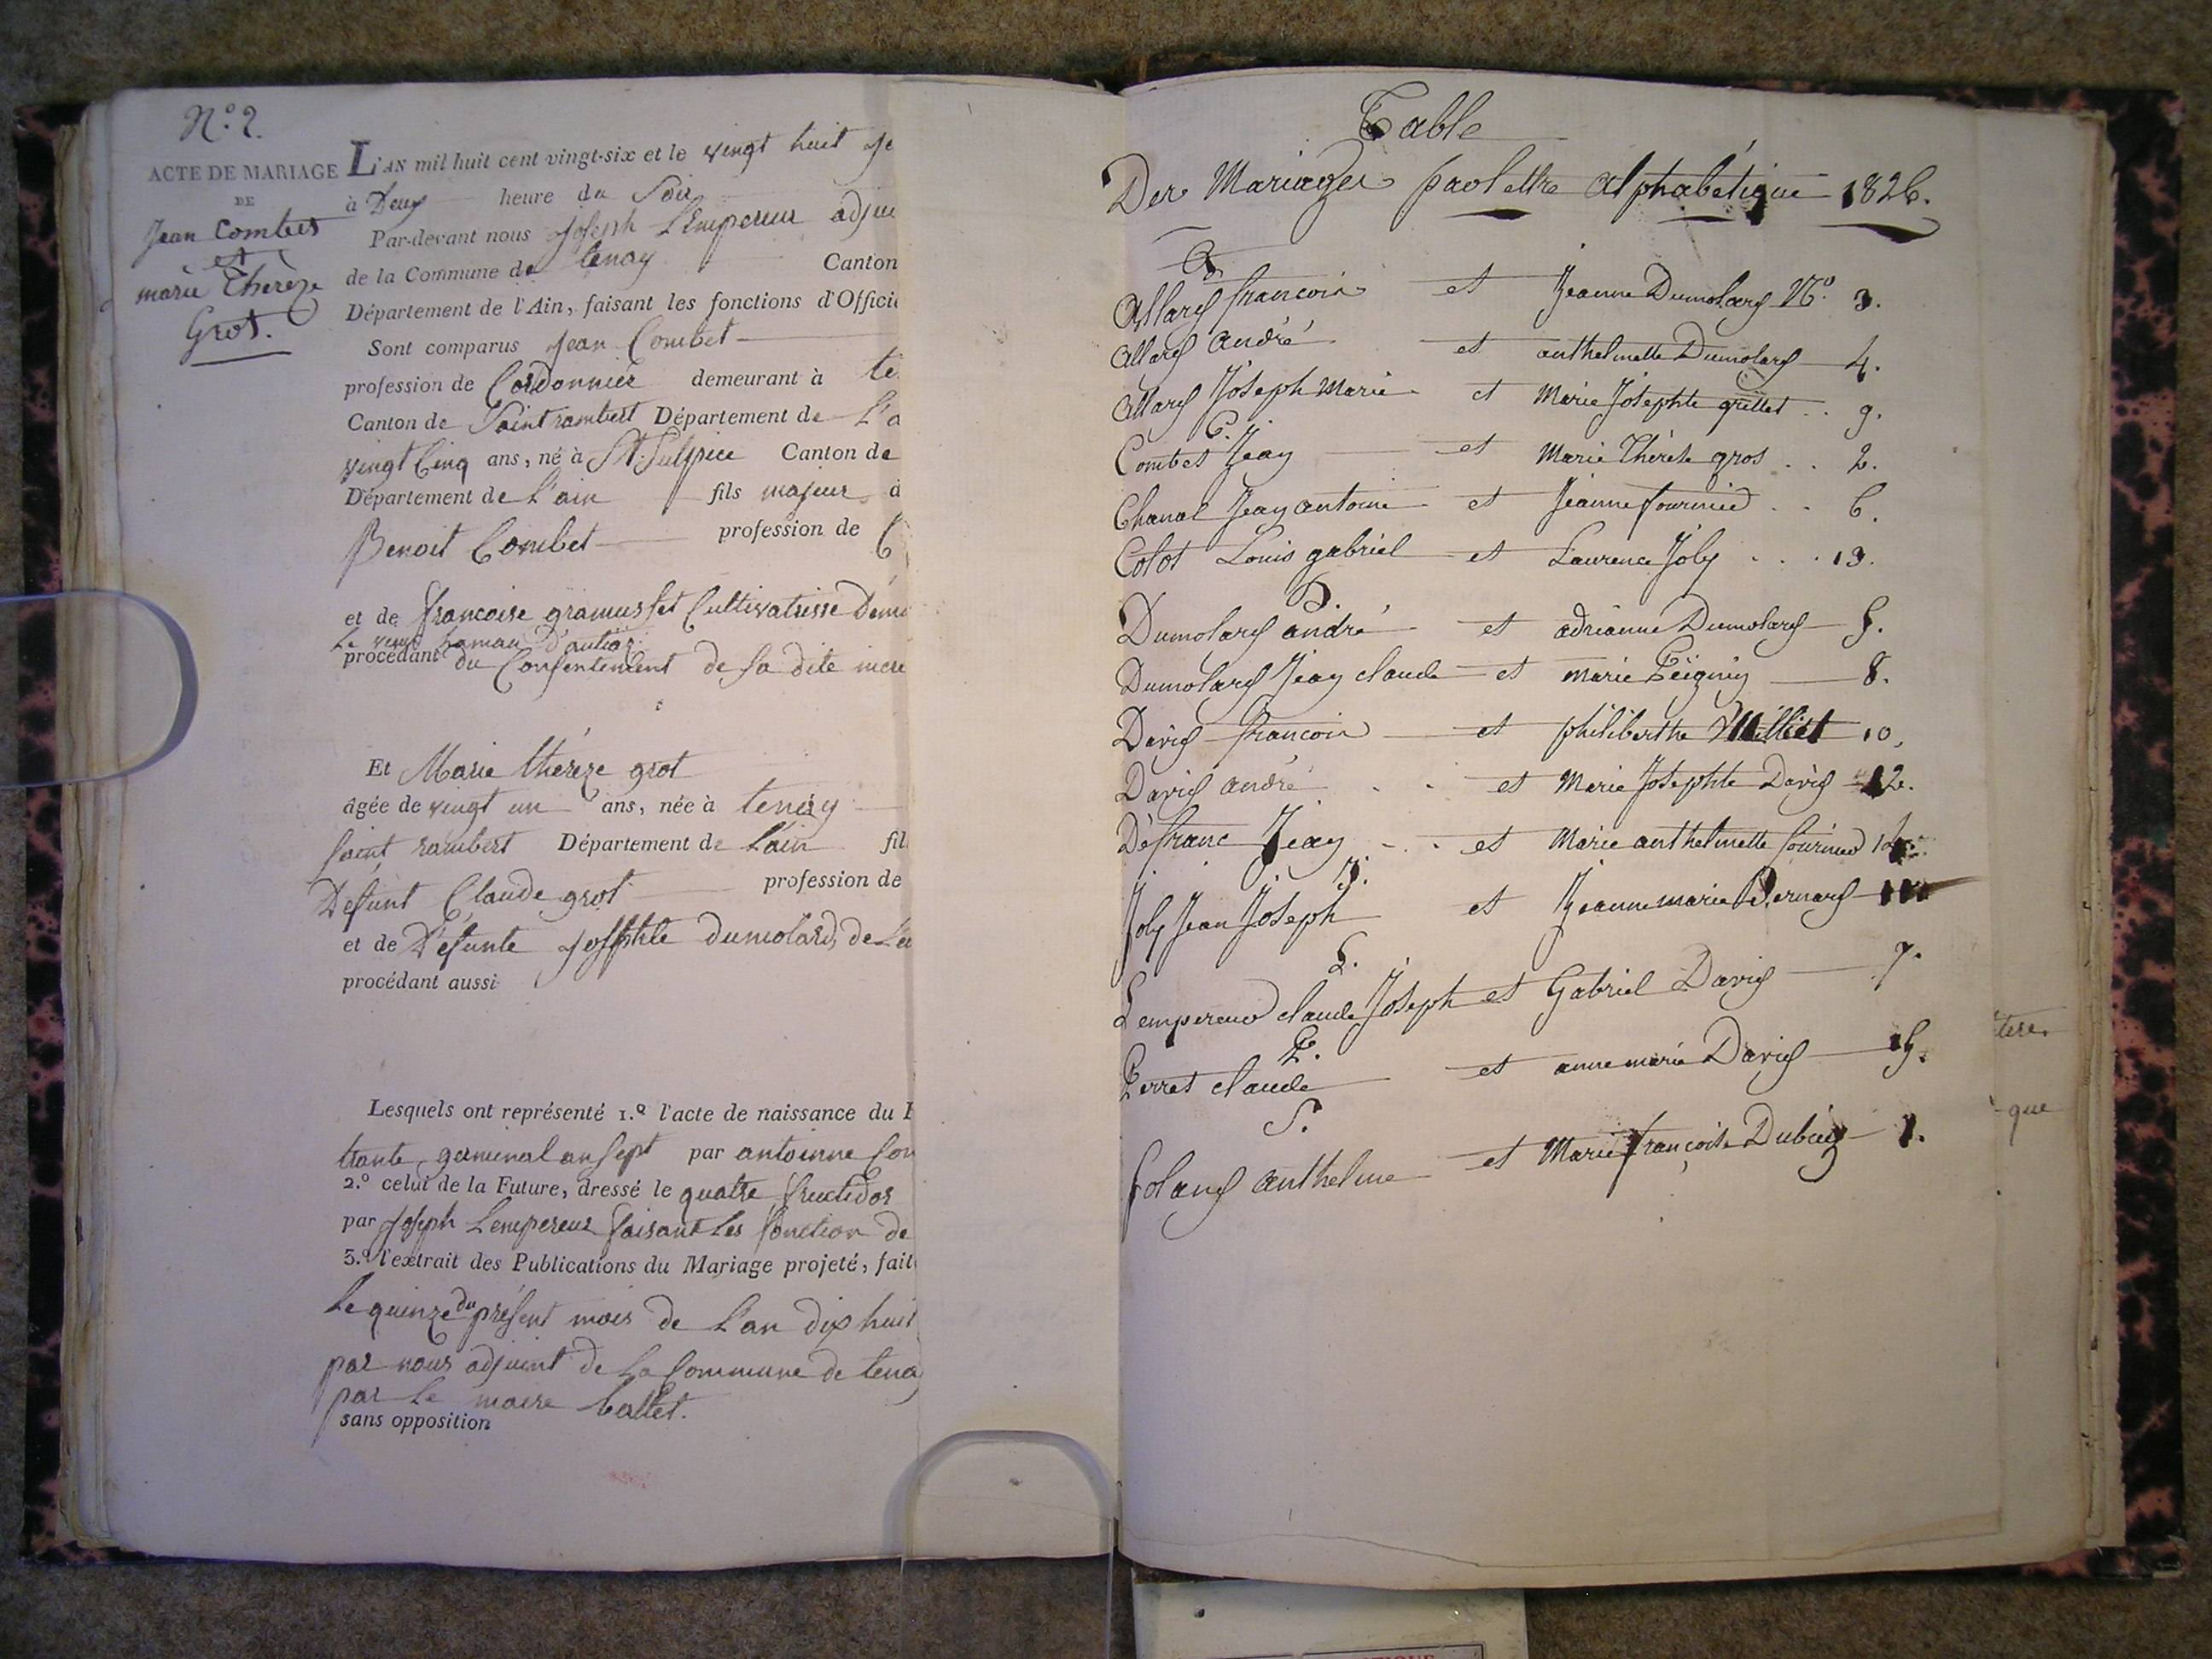 N.º 2.
ACTE DE MARIAGE
DE
Jean Combet
et
marie Thérèze
Grot.
L'AN mil huit cent vingt-six et le vingt huit
à Deux heure du Soir
Par-devant nous Joseph L'Empereur adju
de la Commune de tenay Canton
Département de l'Ain, faisant les fonctions d'Offici
Sont comparus Jean Combet
profession de Cordonnier demeurant à te
Canton de Saint rambert Département de L'a
vingt Cinq ans, né à St. Sulpice Canton de
Département de L'ain fils majeur d
Benoit Combet profession de C
et de francoise gramusset Cultivatrisse
hamau
procédant du Consentement de sa dite mere
Et Marie thérèze grot
âgée de vingt un ans, née à tenay
saint rambert Département de L'ain fil
Defunt Claude grot profession de
et de Défunte Josephte dumolard, de
procédant aussi
Lesquels ont représenté 1.º l'acte de naissance du
trante germinal an sept par antoinne
2.º celui de la Future, dressé le quatre fructidor
par Joseph Lempereur faisant les fonction de
3.º l'extrait des Publications du Mariage projeté, fait
le quinze du présent mois de L'an dix huit
par nous adjoint de La Commune de tenay
par le maire ballet.
sans opposition
Table
Des Mariages par lettre Alphabétique 1826.
A
Allard francois et Jeanne Dumolard N.º 3.
Allard André et anthelmette Dumolard 4.
Allard Joseph Marie et Marie Josephte grillet . . 9.
C.
Combet Jean et Marie Thérèse gros . . 2.
Chanal Jean antoine et Jeanne fournier . . 6.
Colot Louis gabriel et Laurence Joly . . . 13.
D.
Dumolard andré et adrianne Dumolard 5.
Dumolard Jean claude et marie Peignin 8.
David francois et philiberthe Milliet 10.
David andré . . et Marie Josephte David 12.
Défranc Jean . . et Marie anthelmette fournier 14.
J.
Joly Jean Joseph et Jeanne marie Bernard
L.
Lempereur claude Joseph et Gabriel David 7.
P.
Perret claude et anne marie David 15.
S.
Soland anthelme et Marie françoise Dubuis 1.
tere.
que